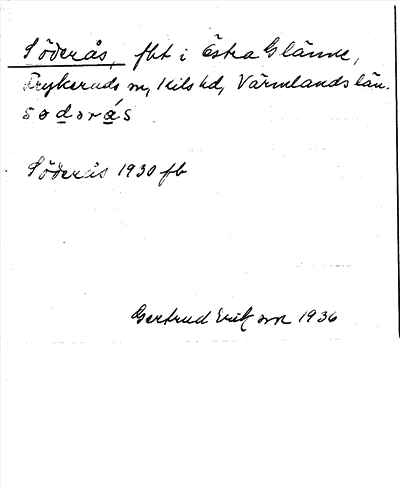 Söderås, fbt i Östra Glänne,
Frykeruds sn, Kils hd, Värmlands län.
s o d ə r á s
Söderås 1930 fb
Gertrud Erikson 1936